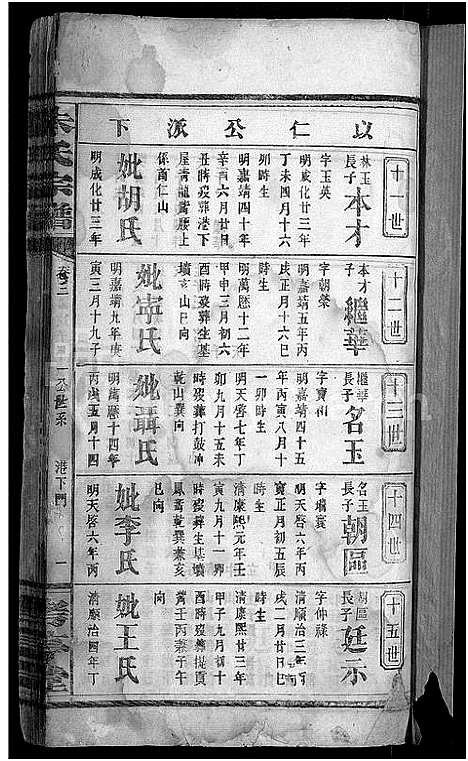 以仁公派下
十一世
林玉長子 本才
字玉英
明成化廿三年
丁未四月十六
卯時生
明嘉靖四十年
辛酉六月廿日
丑時歿葬港下
屋青龍嘴腰上
係南仁山
妣胡氏
明成化廿三年
十二世
本才子 繼華
字朝榮
明嘉靖五年丙
戌正月初五戌
時生
明萬歷十二年
甲申三月初六
酉時歿葬生基
墳亥山巳向
妣寧氏
明嘉靖九年庚
寅三月十九子
十三世
繼華長子 名玉
字寶和
明嘉靖四十五
年丙寅八月十
一卯時生
明天啓七年丁
卯九月十五未
時歿葬打鼓冲
乾山巽向
妣聶氏
明萬歷十四年
丙戌五月十四
十四世
名玉長子 朝區
字環寰
明天啓六年丙
寅正月初五辰
時生
清康熙元年壬
寅九月十一卯
時歿葬生基壪
鳳嘴乾巽兼亥
巳向
妣李氏
明天啓六年丙
十五世
朝區長子 廷示
字仲祿
清順治三年丙
戌二月廿日戌
時生
清康熙廿三年
甲子九月初十
酉時歿葬
嘴壬丙兼子午
向
妣王氏
清順治四年丁
氏宗譜
卷二
世系
港下門
一